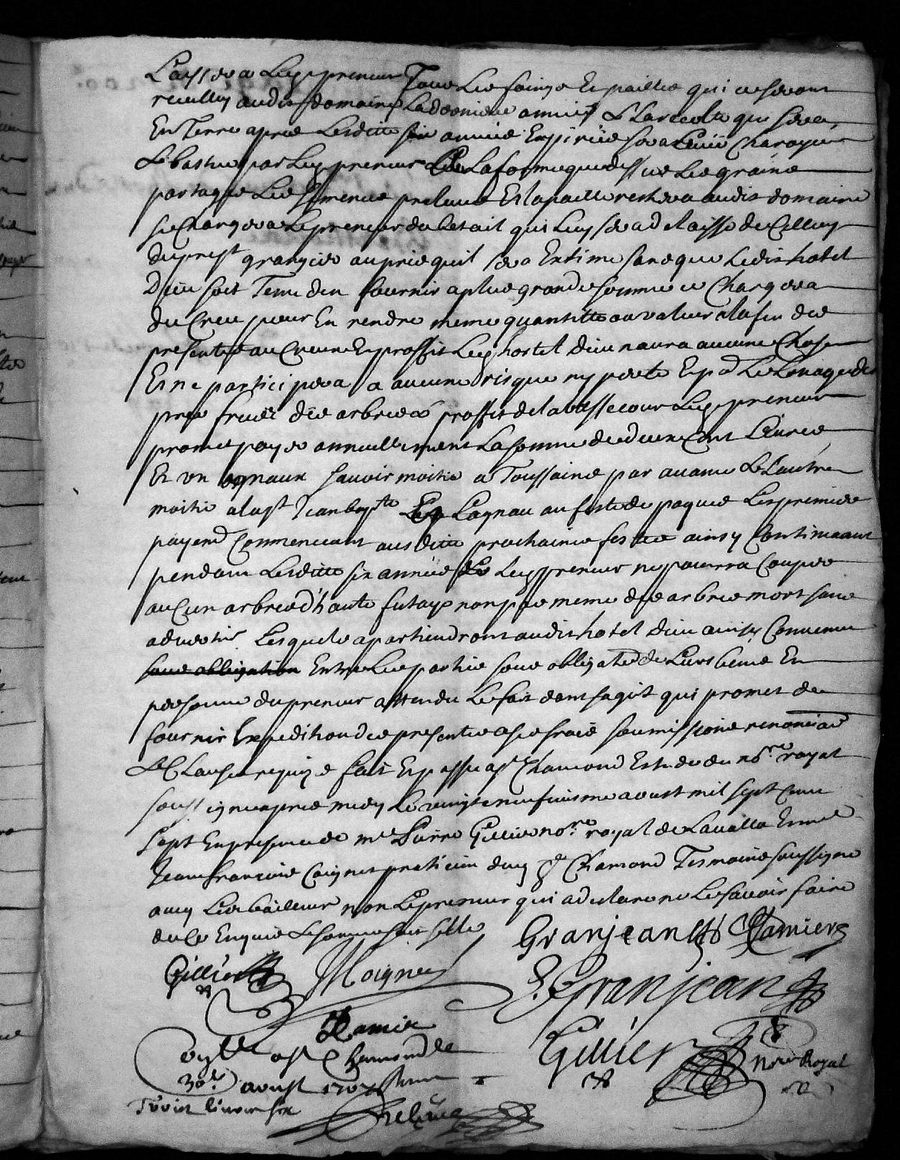 Laissera Ledt preneur Tous Les foings Et paillies qui ce seront
recuillis audit domaine La derniere année & La recolte qui sera
En Terre apres Lesditte six année Expirées sera Levée Charoyée
& battue par Ledt preneur La forme que dessus Les graine
partagée Les semence prelevée Et la paille restera audit domaine
se Chargera Le preneur du betail qui Luy sera delaissé de Celluy
du prest grangier au prix quil sera Estimé sans que Ledit hotel
Dieu soit Tenu den fournir a plus grande somme se Chargera
du Creu pour En rendre meme quantitté ou valeur a la fin des
presente au Creu Et proffit Ledt hostel dieu naura aucune Chose
Et ne participera a aucune risque ny perte Et pr Le Louage des
prés fruit des arbres & proffit de la bassecour Ledt preneur
promet payer annuellement La somme de deux Cent Livres
Et un agneaux sçavoir moitié a Toussaine par avance & Lautre
moitié a la st Jean bapte & Lagnau au feste de paque Les premier
payemt Commencant ausditte prochaine festes ainsy Continuant
pendant Lesditte six année Ledt preneur ne pourra Couper
aucun arbre d'haute futaye non pas meme des arbres mort sans
advertir Lesquels apartiendront audit hotel dieu ainsy Convenu
sous obligation Entre Les partie sous obligaton de Leurs biens Et
personne du preneur attendu Le fait dont sagit qui promet de
fournir Expedition des presente a ses frais soumissions renonciaons
& Clauses requise fait Et passé a st Chamond Estude du nore royal
soussigné apres midy Le vingt neufvieme aoust mil sept Cent
sept En presence de me Pierre Gillier nore royal de Lavalla Et me
Jean francois Coignet praticien dudt st Chamond Tesmoins soussigné
avec Les bailleur non Le preneur qui a declaré ne Le sçavoir faire
de Ce Enquis Et sommé
Granjean Ramier
Gillier Coignet E. Granjean
Ramier
Gillier Nore Royal
Collé a st Chamond Le
30e aoust 1707
Reçeu